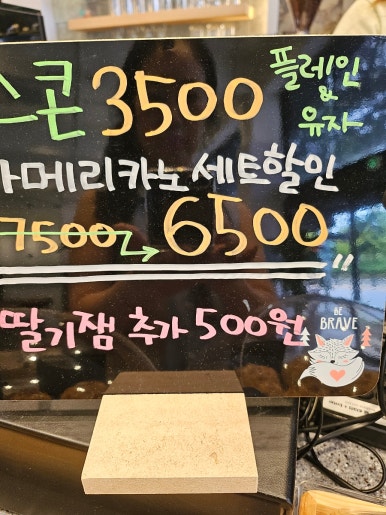 스콘 3500 플레인
&
유자
아메리카노 세트할인
7500 → 6500
딸기잼 추가 500원
BE
BRAVE